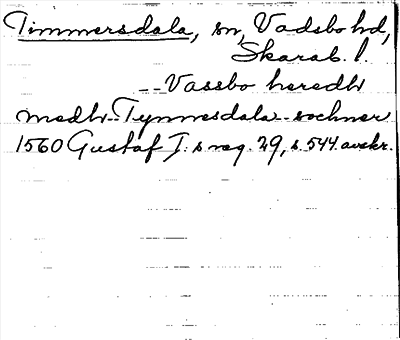 Timmersdala, sn, Vadsbo hd,
Skarab. l.
-- Vassbo heredh
medh -- Tymmesdala -- sochner
1560 Gustaf I:s reg. 29, s. 544. avskr.